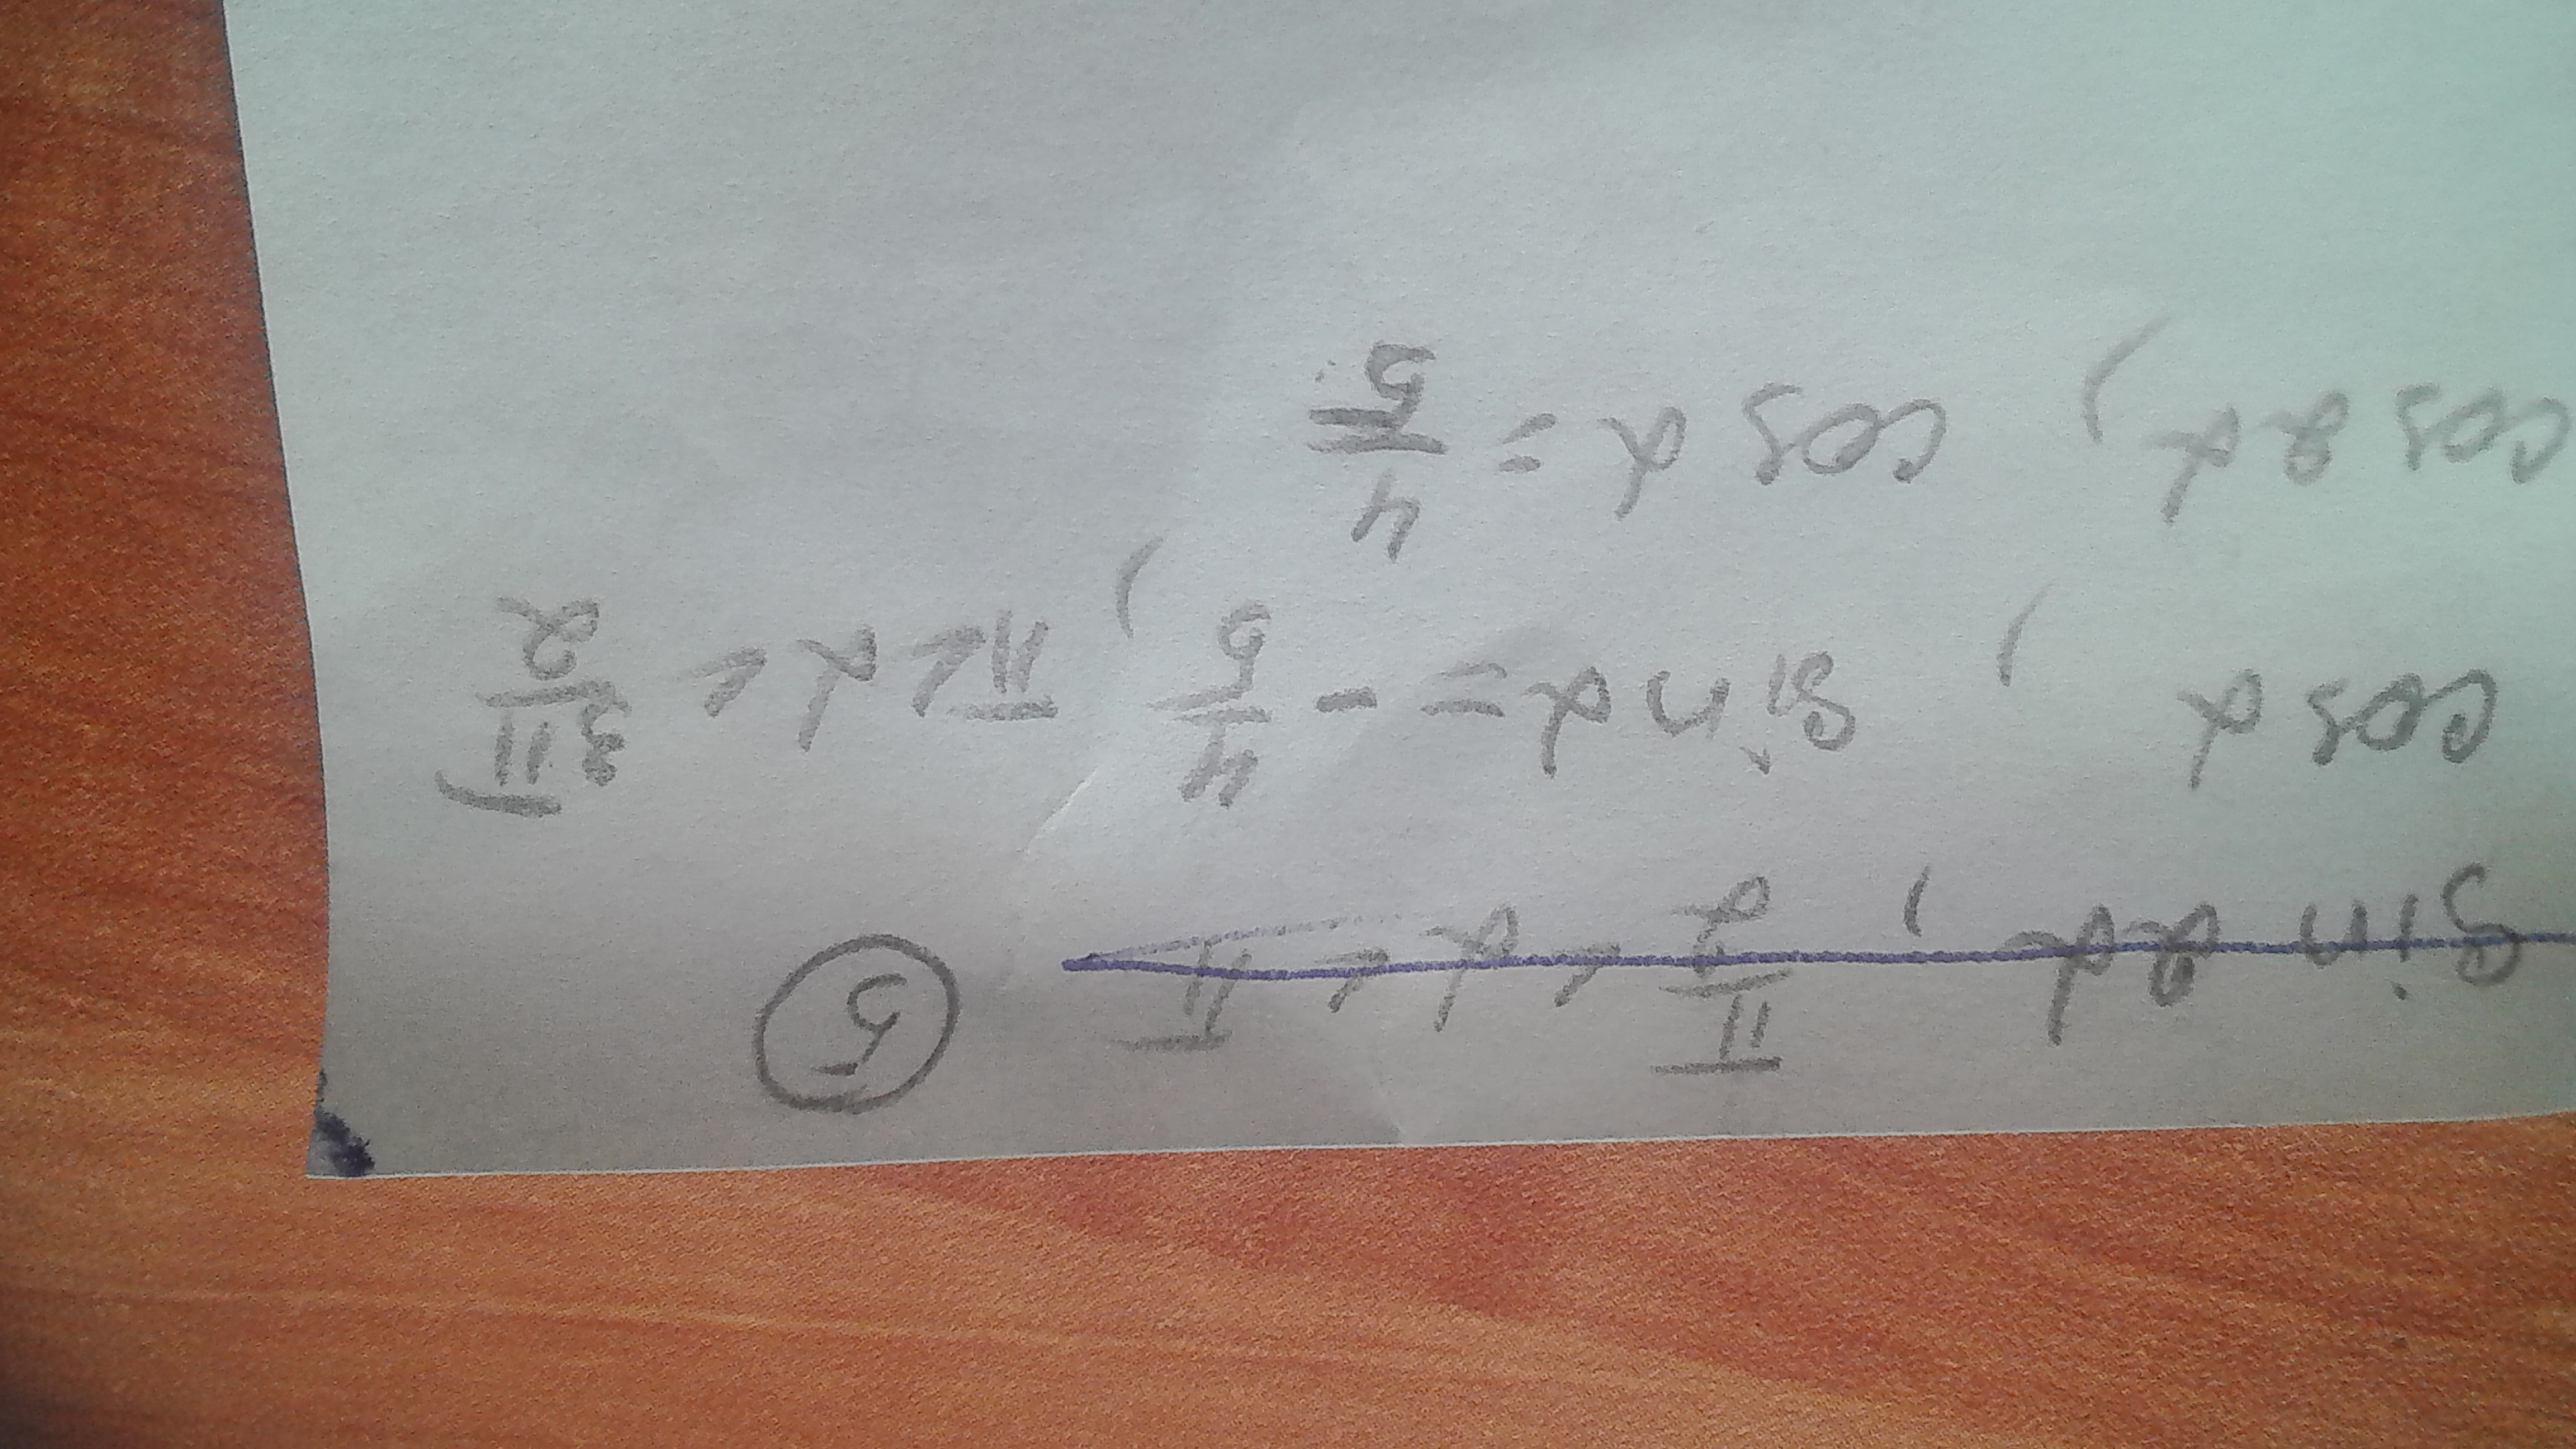 ⑤
sin 2α, π/2 < α < π
cos α, sin α = - 4/5, π < α < 3π/2
cos 2α, cos α = 4/5